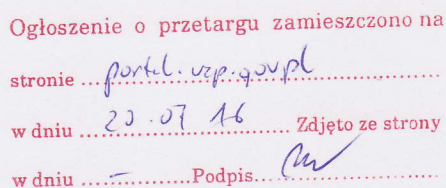 Ogłoszenie o przetargu zamieszczono na
stronie ... portal.uzp.gov.pl
w dniu ... 20.07 16 ... Zdjęto ze strony
w dniu ... – ... Podpis...